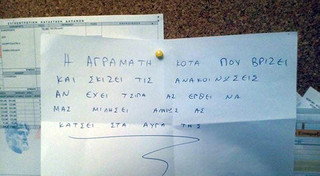 ΣΥΓΚΕΝΤΡΩΤΙΚΗ ΚΑΤΑΣΤΑΣΗ ΔΑΠΑΝΩΝ
Η ΑΓΡΑΜΑΤΗ ΚΟΤΑ ΠΟΥ ΒΡΙΖΕΙ
ΚΑΙ ΣΚΙΖΕΙ ΤΙΣ ΑΝΑΚΟΙΝΩΣΕΙΣ
ΑΝ ΕΧΕΙ ΤΣΙΠΑ ΑΣ ΕΡΘΕΙ ΝΑ
ΜΑΣ ΜΙΛΗΣΕΙ ΑΛΛΙΩΣ ΑΣ
ΚΑΤΣΕΙ ΣΤΑ ΑΥΓΑ ΤΗΣ